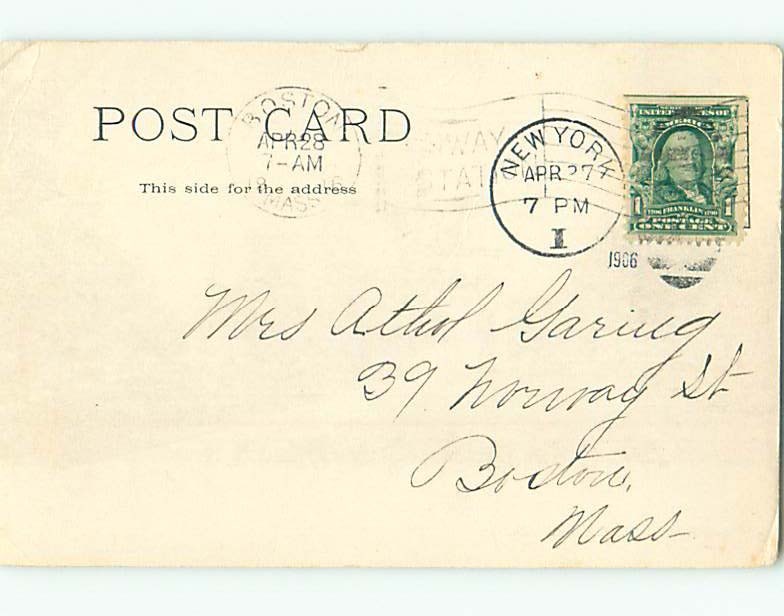 POST CARD
This side for the address
BOSTON
APR 28
7-AM
MASS
NEW YORK
APR 27
7 PM
I
1906
UNITED STATES OF
AMERICA
1 FRANKLIN 1
POSTAGE
ONE CENT
Mrs Athol Garing
39 Norway St
Boston,
Mass